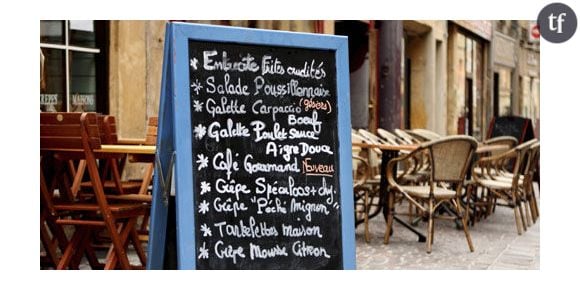 tf
CREPES MAISON
* Entrecôte Frites crudités
* Salade Poussillonnaise
* Galette Carpaccio (gésiers)
Boeuf
* Galette Poulet sauce
Aigre Douce
* Café Gourmand Nouveau
* Crêpe Spéculoos + chty
* Crêpe "Péché Mignon"
* Tartelettes maison
* Crêpe Mousse Citron